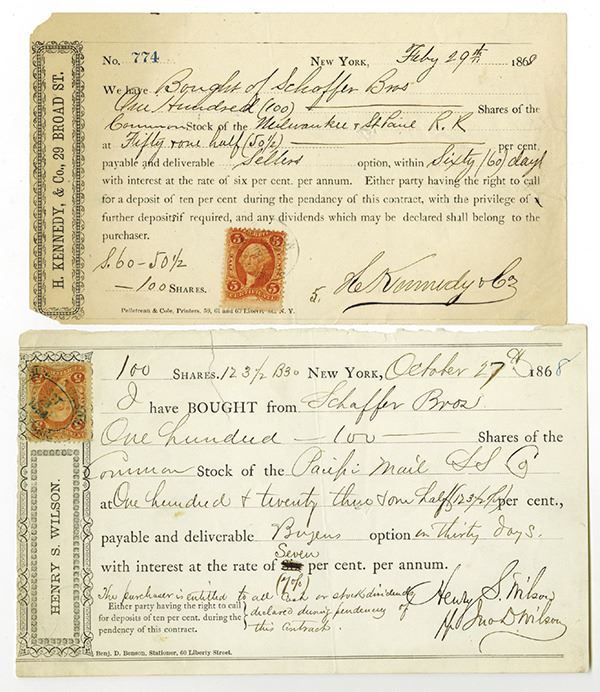 H. KENNEDY, & Co., 29 BROAD ST.
No. 774 NEW YORK, Feby 29th 1868
We have Bought of Schaffer Bros
One Hundred (100) Shares of the
Common Stock of the Milwaukee & St Paul R.R
at Fifty & one half (50½) per cent.
payable and deliverable Sellers option, within Sixty (60) days
with interest at the rate of six per cent. per annum. Either party having the right to call
for a deposit of ten per cent during the pendancy of this contract, with the privilege of
further deposits if required, and any dividends which may be declared shall belong to the
purchaser.
S.60-50½
-100 SHARES.
5 5
5 5
CERTIFICATE
5. H Kennedy & Co
Pelletreau & Cole, Printers, 59, 61 and 63 Liberty St. N. Y.
HENRY S. WILSON.
100 SHARES. 123½ B30 NEW YORK, October 27th 1868
I have BOUGHT from Schaffer Bros
One hundred — 100 — Shares of the
Common Stock of the Pacific Mail SS Co
at One hundred & twenty three & one half (123½ %) per cent.,
payable and deliverable Buyers option in thirty days.
Seven
with interest at the rate of six per cent. per annum.
(7%)
The purchaser is entitled to all Cash or stock dividends
declared during pendency of
this Contract.
Either party having the right to call
for deposits of ten per cent. during the
pendency of this contract.
Henry S. Wilson
Jno D Wilson
Benj. D. Benson, Stationer, 60 Liberty Street.